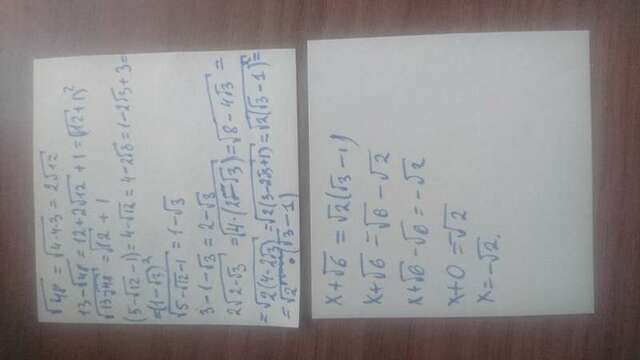 √48 = √4·4·3 = 2√12
13-√48 = 12+2√12 +1 = (√12+1)²
√13+√48 = √12 + 1
(5-√12-1) = 4-√12 = 4-2√3 = 1-2√3+3=
=(1-√3)²
√5-√12-1 = 1-√3
3-1-√3 = 2-√3
2√2-√3 = √4·(2-√3) = √8-4√3 =
=√2(4-2√3) = √2(3-2√3+1) = √2(√3-1)² =
=√2 · (√3-1)
x+√6 = √2(√3-1)
x+√6 = √6-√2
x+√6-√6 = -√2
x+0 = -√2
x=-√2.